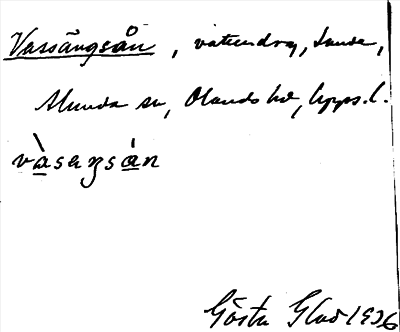 Vassängsån, vattendrag, Sunda,
Alunda sn, Olands hd, Upps. l.
vàsæŋsán
Gösta Glad 1936